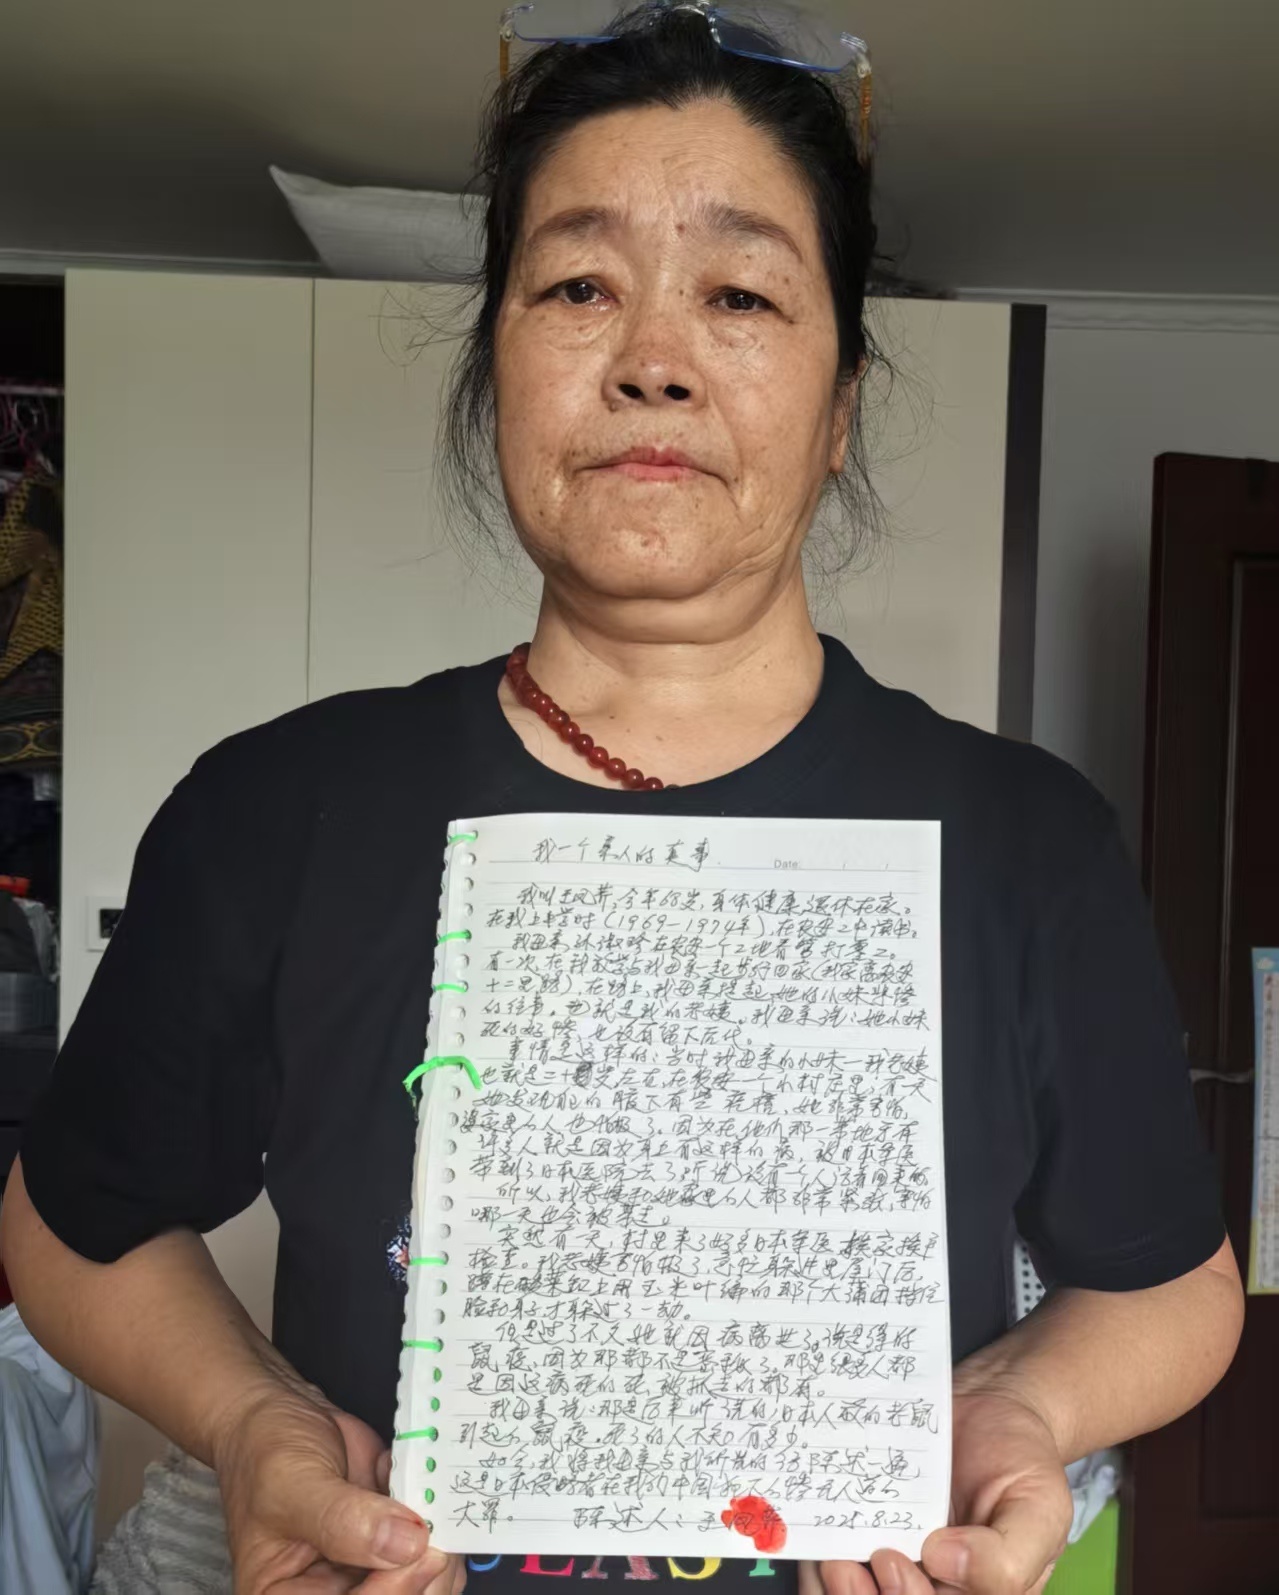 我一个亲人的真事.
Date:
我叫王凤芹,今年68岁,身体健康,退休在家。
在我上中学时(1969—1974年),在农安二中读书。
我母亲孙淑珍在农安一个工地看管打更。
有一次,在我放学与我母亲一起步行回家(我家离农安
十二里路),在路上,我母亲提起,她的小妹
的往事。也就是我的老姨。我母亲说:她小妹
死的好惨,也没有留下后代。
事情是这样的:当时我母亲的小妹—我老姨
也就是二十 岁左右,在农安一个小村庄里,有一天
她发现自己的腋下有些疙瘩,她非常害怕,
家里的人也怕极了。因为在他们那一带地方有
许多人就是因为身上有这样的病,被日本军医
带到了日本医院去了,听说没有一个人活着回来的
所以,我老姨和她家里的人都非常紧张,害怕
哪一天也会被带走。
突然有一天,村里来了好多日本军医,挨家挨户
检查。我老姨害怕极了,急忙躲进里屋门后,
蹲在 菜缸上用玉米叶编的那个大蒲团挡住
脸和身子,才躲过了一劫。
但是过了不久她就因病离世了。说是得的
鼠疫,因为那都不是秘密了。那里很多人都
是因这病死的死,被抓走的都有。
我母亲说:那是后来听说的,日本人放的老鼠
引起的鼠疫。死了的人不知有多少。
如今,我将我母亲与我所说的话陈述一遍,
这是日本侵略者在我们中国犯下的惨无人道的
大罪。 陈述人:王凤芹 2025.8.23.
EAST